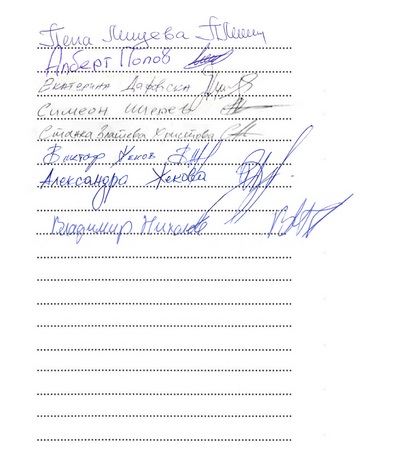 Пепа Пищева
Алберт Попов
Екатерина
Симеон
Станка Златева Христова
Виктор Жеков
Александра Жекова
Владимир Николов